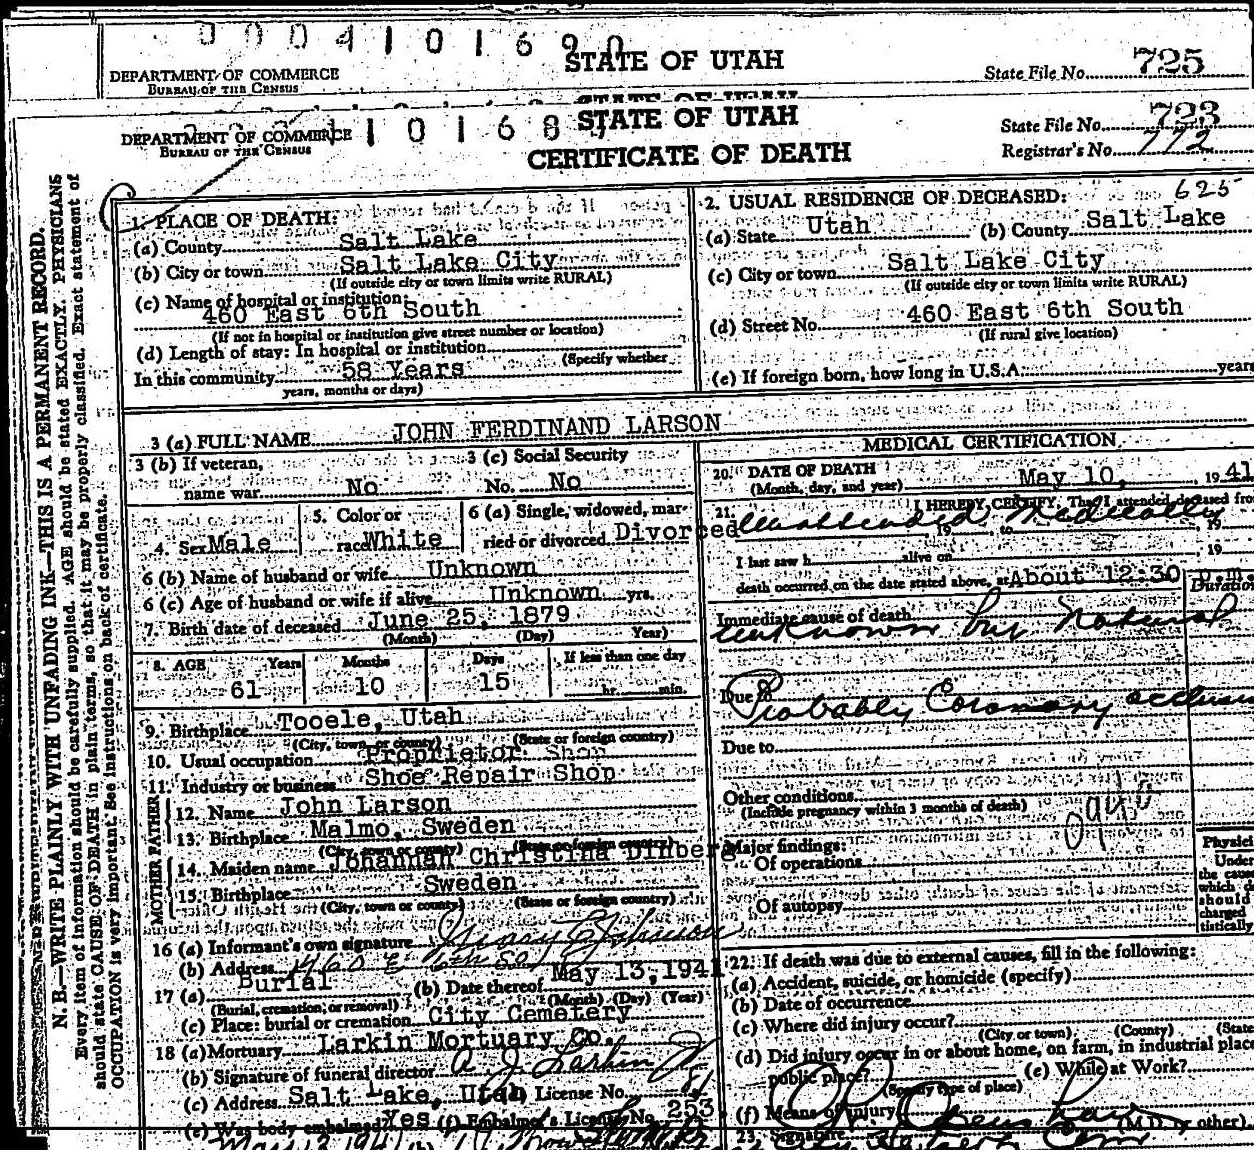 0 0 0 4 1 0 1 6 9 0
STATE OF UTAH
DEPARTMENT OF COMMERCE
BUREAU OF THE CENSUS
State File No. 725
STATE OF UTAH
DEPARTMENT OF COMMERCE
BUREAU OF THE CENSUS
1 0 1 6 8
STATE OF UTAH
CERTIFICATE OF DEATH
State File No. 723
Registrar's No. 772
N. B.—WRITE PLAINLY WITH UNFADING INK—THIS IS A PERMANENT RECORD.
Every item of information should be carefully supplied. AGE should be stated EXACTLY. PHYSICIANS
should state CAUSE OF DEATH in plain terms, so that it may be properly classified. Exact statement of
OCCUPATION is very important. See instructions on back of certificate.
1. PLACE OF DEATH:
(a) County Salt Lake
(b) City or town Salt Lake City
(If outside city or town limits write RURAL)
(c) Name of hospital or institution:
460 East 6th South
(If not in hospital or institution give street number or location)
(d) Length of stay: In hospital or institution
(Specify whether
In this community 58 Years
years, months or days)
2. USUAL RESIDENCE OF DECEASED: 625
(a) State Utah (b) County Salt Lake
(c) City or town Salt Lake City
(If outside city or town limits write RURAL)
(d) Street No. 460 East 6th South
(If rural give location)
(e) If foreign born, how long in U.S.A. years
3 (a) FULL NAME JOHN FERDINAND LARSON
3 (b) If veteran, 3 (c) Social Security
name war No No. No
4. Sex Male 5. Color or race White 6 (a) Single, widowed, married or divorced Divorced
6 (b) Name of husband or wife Unknown
6 (c) Age of husband or wife if alive Unknown yrs.
7. Birth date of deceased June 25, 1879
(Month) (Day) Year)
8. AGE Years Months Days If less than one day
61 10 15 hr. min.
9. Birthplace Tooele, Utah
(City, town or county) (State or foreign country)
10. Usual occupation Proprietor Shop
11. Industry or business Shoe Repair Shop
FATHER
12. Name John Larson
13. Birthplace Malmo, Sweden
(City, town or county) (State or foreign country)
MOTHER
14. Maiden name Johannah Christina Dinberg
15. Birthplace Sweden
(City, town or county) (State or foreign country)
16 (a) Informant's own signature Mary E Johnson
(b) Address 460 E 6th So
17 (a) Burial (b) Date thereof May 13, 1941
(Burial, cremation, or removal) (Month) (Day) (Year)
(c) Place: burial or cremation City Cemetery
18 (a) Mortuary Larkin Mortuary Co.
(b) Signature of funeral director A J Larkin
(c) Address Salt Lake, Utah License No. 81
(e) Was body embalmed? Yes (f) Embalmer's License No. 253
MEDICAL CERTIFICATION
20. DATE OF DEATH May 10, 1941
(Month, day, and year)
21. I HEREBY CERTIFY, That I attended deceased from
Unattended Medically 19 to 19
I last saw h alive on 19
death occurred on the date stated above, at About 12:30 p.m.
Duration
Immediate cause of death
Unknown but Natural
Due to Probably Coronary occlusion
Due to
Other conditions
(Include pregnancy within 3 months of death)
94b
Major findings:
Of operations
Of autopsy
Physici
Under
the cause
which d
should
charged
tistically
22. If death was due to external causes, fill in the following:
(a) Accident, suicide, or homicide (specify)
(b) Date of occurrence
(c) Where did injury occur?
(City or town) (County) (State
(d) Did injury occur in or about home, on farm, in industrial place
public place? (e) While at Work?
(Specify type of place)
(f) Means of injury
23. Signature (M.D. or other)